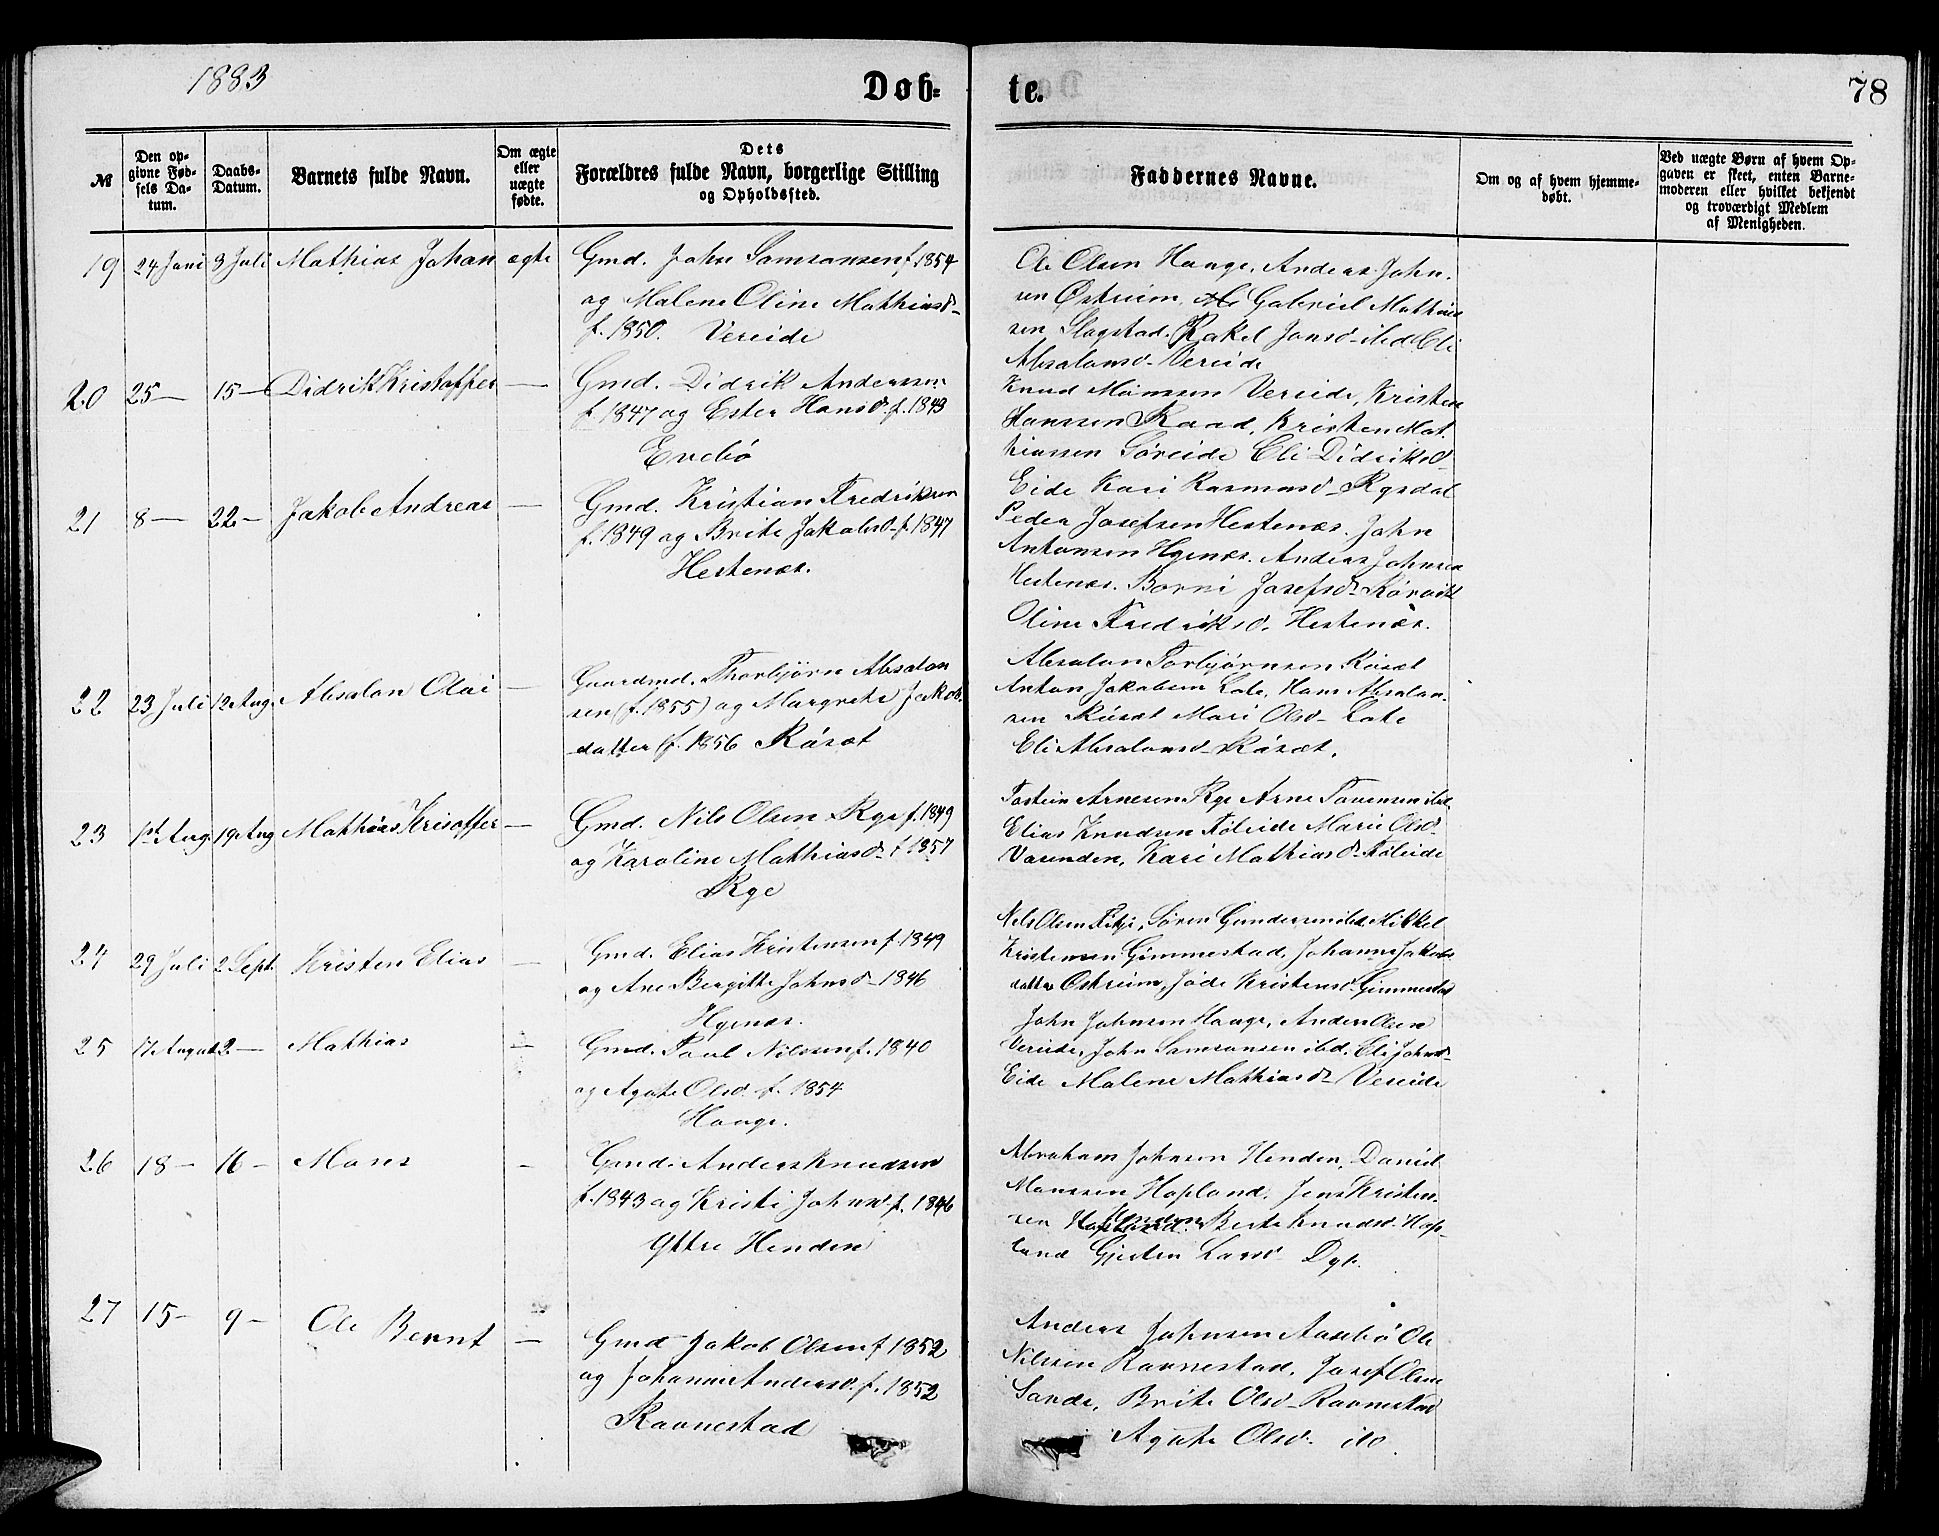 1883
Døb-
te.
78
№
Den op-
givne Fød-
sels Da-
tum.
Daabs-
Datum.
Barnets fulde Navn.
Om ægte
eller
uægte
fødte.
Dets
Forældres fulde Navn, borgerlige Stilling
og Opholdssted.
Faddernes Navne.
Om og af hvem hjemme-
døbt.
Ved uægte Børn af hvem Op-
gaven er skeet, enten Barne-
moderen eller hvilket bekjendt
og troværdigt Medlem
af Menigheden.
19 24 Juni 8 Juli Mathias Johan ægte
Gmd. John Samsonsen f. 1854
og Malene Oline Mathiasd-
f. 1850. Vereide
Ole Olsen Hauge, Anders John-
sen Østreim, Gabriel Mathias
sen Slagstad. Rakel Jonsd- ibd. Eli
Absalonsd- Vereide
20 25 — 15 — Didrik Kristoffer —
Gmd. Didrik Anderssen
f. 1847 og Ester Hansd. f. 1843
Enebø
Knud Mønssen Vereide, Kristen
Hanssen Raad, Kristen Mat-
hiassen Søreide Eli Didriksd-
Eide Kari Rasmusd- Rysdal
21 8 — 22 — Jakob Andreas —
Gmd. Kristian Fredriksen
f. 1849 og Brite Jakobsd- f. 1847
Hestenes.
Peder Josefsen Hestenes. John
Antonsen Hyenes. Anders Johnsen
Hestenes. Borni Josefsd-
Oline Fredriksd. Hestenes.
22 23 Juli 12 Aug. Absalon Olai —
Gaardmd. Thorbjørn Absalon
sen (f. 1855) og Margrete Jakobs-
datter (f. 1856 Råset
Absalon Torbjørnsen Råset
Anton Jakobsen Lote, Hans Absalon-
sen Råset Mari Olsd- Lote
Eli Absalonsd- Råset.
23 1st Aug. 19 Aug Mathias Krisoffer —
Gmd. Nils Olsen Ryg f. 1849
og Karoline Mathiasd- f 1857
Ryg
Tostein Arnesen Ryg Arne ibd.
Elias Knudsen Føleide Marie Olsd-
Vasenden, Kari Mathiasd- Føleide
24 29 Juli 2 Sept. Kristen Elias —
Gmd. Elias Kristensen f. 1849
og Ane Bergitte Johnsd- 1846
Hyenes.
Nils Olsen Fitje, Søren Gundersen ibd. Mikkel
Kristensen Gimmestad, Johanne Jakobs
datter Østreim, Jøde Kristensd- Gimmestad
25 17 August 2 — Mathias —
Gmd. Paul Nilssen f. 1840
og Agate Olsd. f. 1854
Hauge.
John Johnsen Hauge, Anders Olsen
Vereide, John Samsonsen ibd. Eli Johnsd-
Eide Malene Mathiasd- Vereide
26 18 — 16 — Mons —
Gmd. Anders Knudsen
f. 1843 og Kristi Johnsd. f. 1846
Yttre Henden
Abraham Johnsen Henden, Daniel
Monssen Hopland. Jens Kristen-
sen Hopland. Henden Berte Knudsd. Hop-
land Gjerten Larsd- Dyb.
27 15 — 9 — Ole Bernt —
Gmd Jakob Olsen f 1852
og Johanne Andersd. f. 1852
Ravnestad
Anders Johnsen Aasebø Ole
Nilssen Ravnestad, Josef Olsen
Sande, Brite Olsd- Ravnestad
Agate Olsd. ibd.